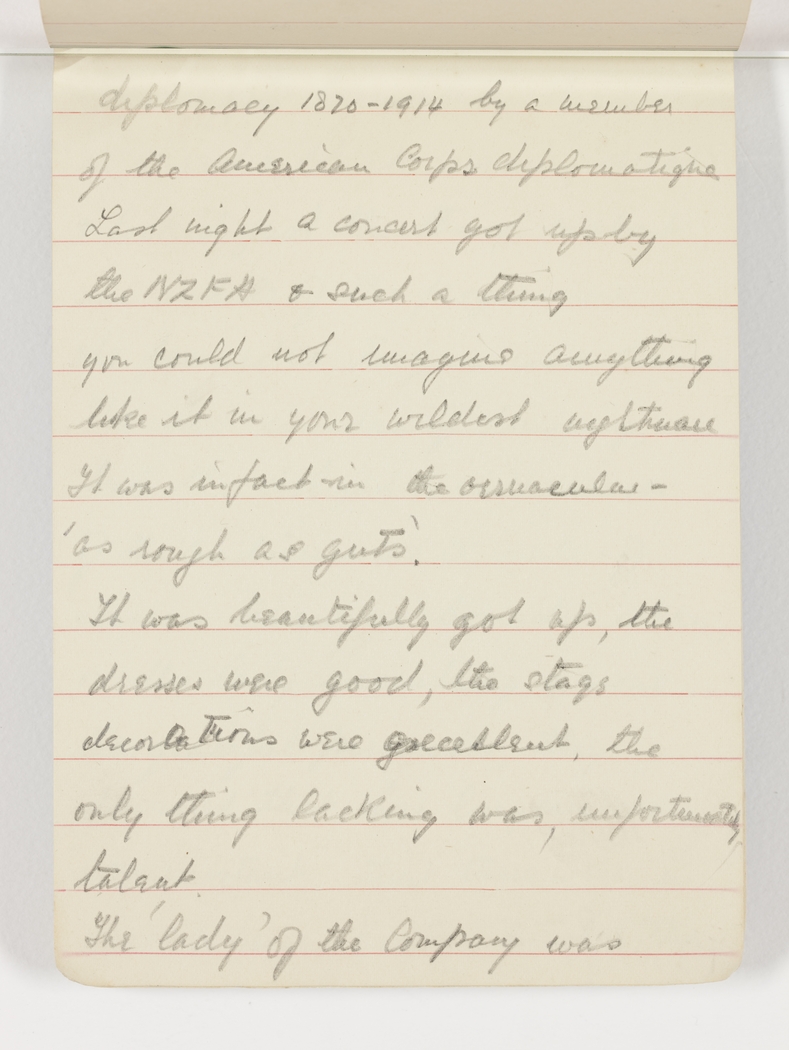 diplomacy 1870-1914 by a member
of the American Corps diplomatique
Last night a concert got up by
the NZFA & such a thing
you could not imagine anything
like it in your wildest nightmare
It was in fact - in the vernacular -
'as rough as guts'.
It was beautifully got up, the
dresses were good, the stage
decorations were excellent, the
only thing lacking was, unfortunately
talent.
The 'lady' of the Company was